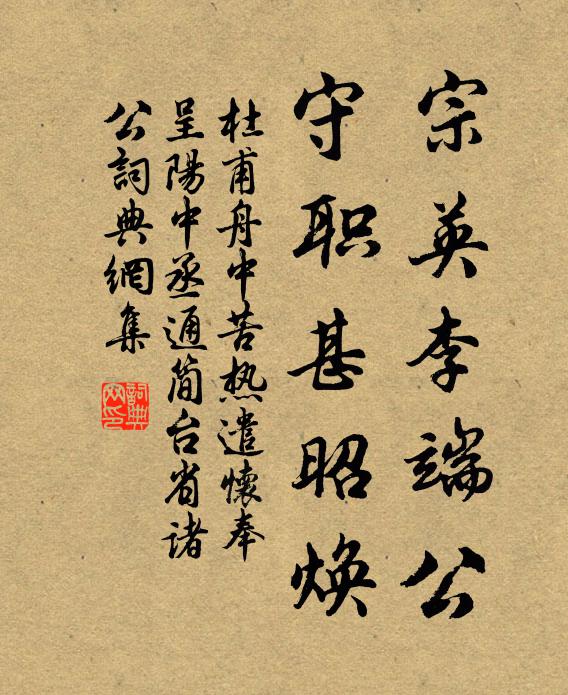 宗英李端公
守职甚昭焕
杜甫舟中苦热遣懷奉
呈陽中丞通简台省诸
公詞典網集
詞典网印